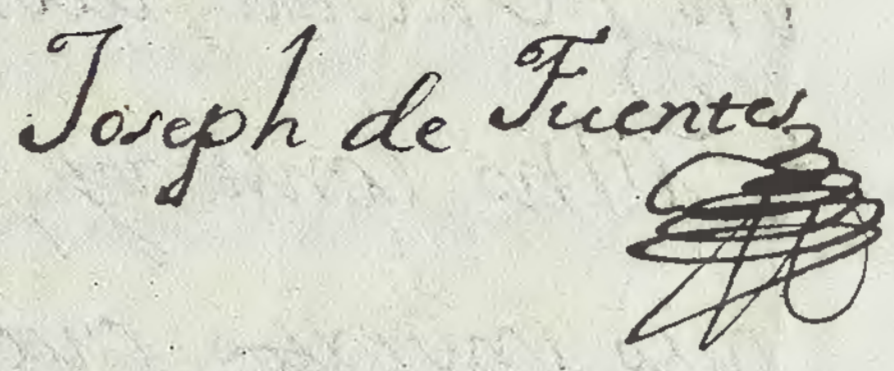 Joseph de Fuentes